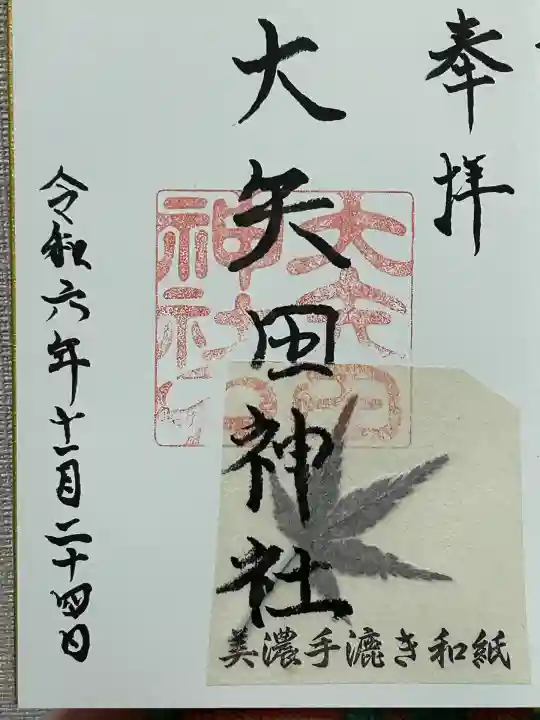 奉拝
大矢田神社
大矢田
神社
美濃手漉き和紙
令和六年十一月二十四日